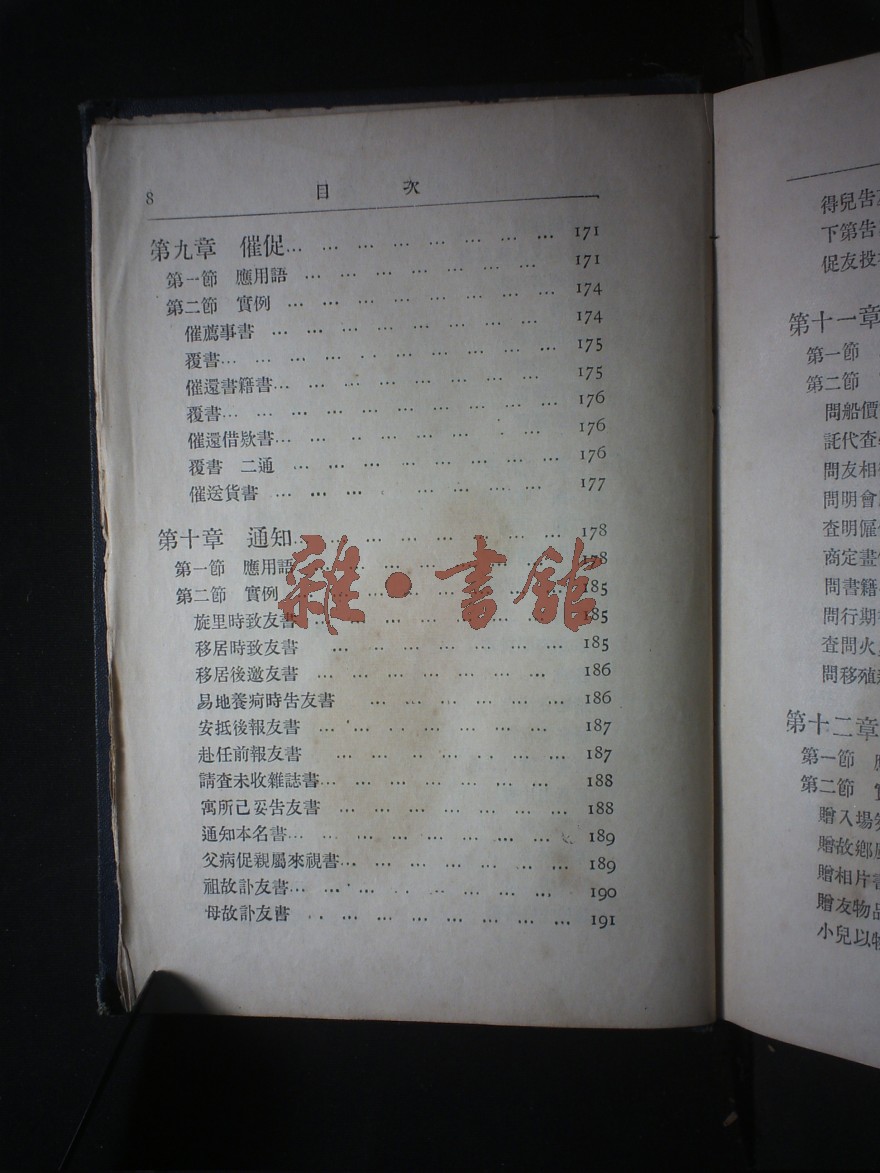 8 目 次
第九章 催促… … … … … … … … … 171
第一節 應用語 … … … … … … … 171
第二節 實例 … … … … … … … … 174
催薦事書 … … … … … … … … 174
覆書… … … … … … … … … 175
催還書籍書… … … … … … … … 175
覆書… … … … … … … … … 176
催還借欵書… … … … … … … … 176
覆書 二通 … … … … … … … … 176
催送貨書 … … … … … … … 177
第十章 通知… … … … … … … … 178
第一節 應用語 … … … … … … … 178
第二節 實例 … … … … … … … … 185
旋里時致友書 … … … … … … … 185
移居時致友書 … … … … … … … 185
移居後邀友書 … … … … … … … 186
易地養疴時告友書 … … … … … … 186
安抵後報友書 … … … … … … … 187
赴任前報友書 … … … … … … … 187
請查未收雜誌書… … … … … … … 188
寓所已妥告友書 … … … … … … 188
通知本名書… … … … … … … … 189
父病促親屬來視書… … … … … … 189
祖故訃友書… … … … … … … … 190
母故訃友書 … … … … … … … 191
雜·書館
得兒告
下第告
促友投
第十一章
第一節
第二節
問船價
託代查
問友相
問明會
查明僱
商定畫
問書籍
問行期
查問火
問移殖
第十二章
第一節
第二節
贈入場
贈故鄉
贈相片
贈友物品
小兒以物